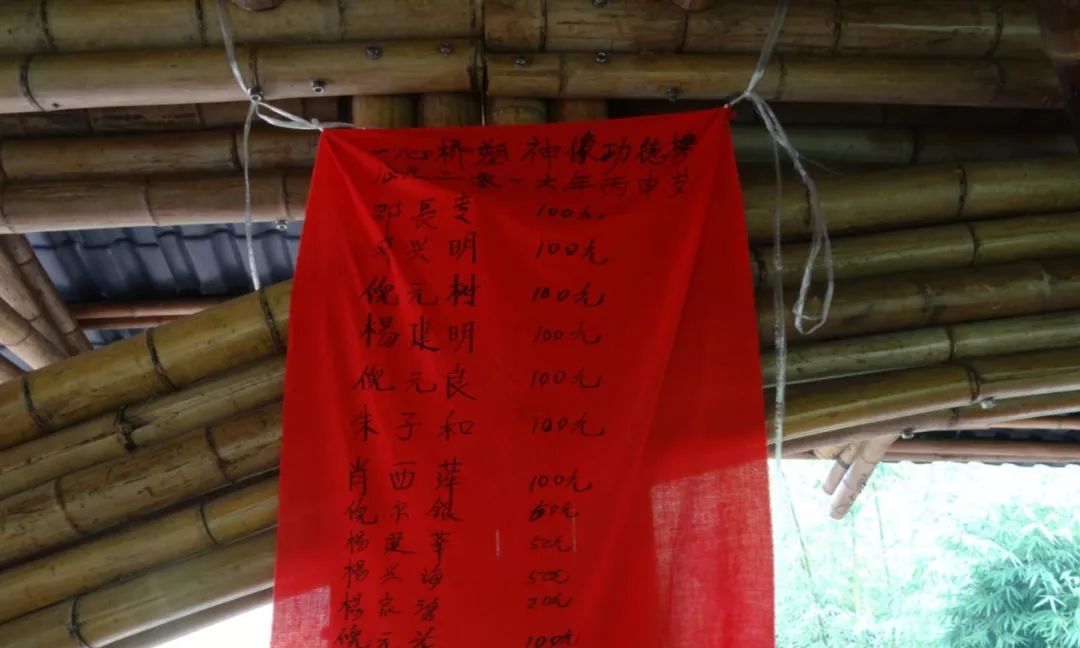 一心桥塑神像功德榜
二零一六年丙申岁
邓長 100元
邓兴明 100元
倪元树 100元
杨建明 100元
倪元良 100元
朱子和 100元
肖西萍 100元
倪尔银 60元
杨建華 50元
杨兴海 50元
杨家 20元
倪元 100元